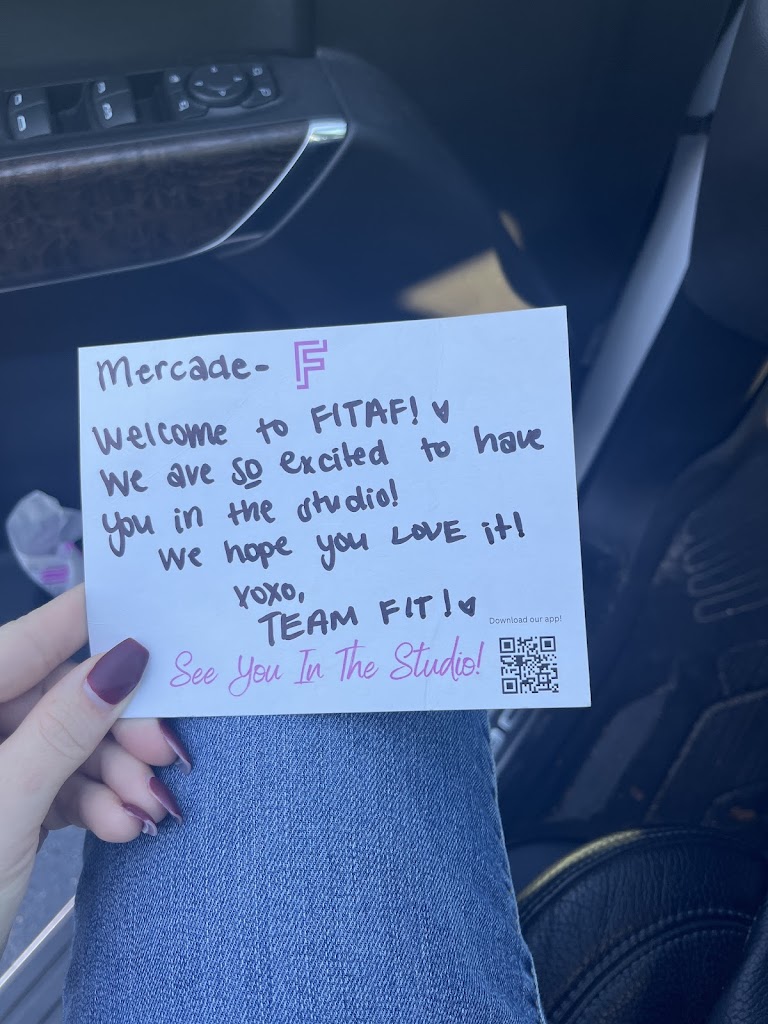 Mercade- F
Welcome to FITAF!
We are so excited to have
you in the studio!
We hope you LOVE it!
xoxo,
TEAM FIT!
Download our app!
See You In The Studio!